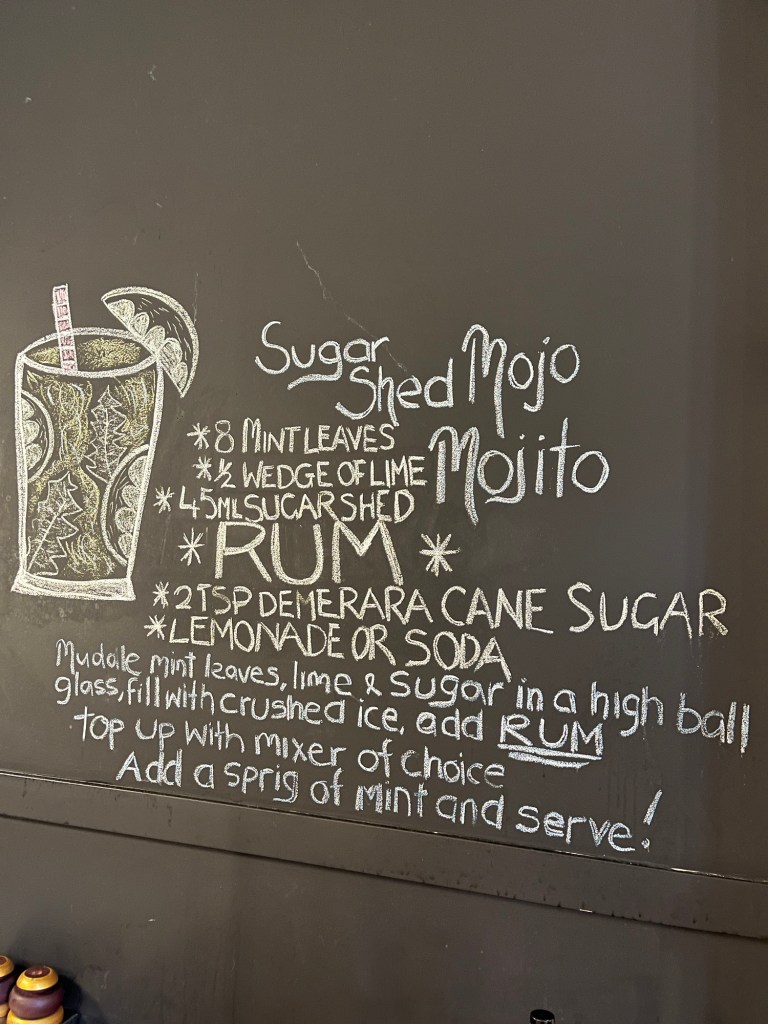 Sugar Shed Mojo
Mojito
*8 MINT LEAVES
*½ WEDGE OF LIME
*45ML SUGAR SHED
*RUM*
*2TSP DEMERARA CANE SUGAR
*LEMONADE OR SODA
Muddle mint leaves, lime & sugar in a high ball
glass, fill with crushed ice, add RUM
top up with mixer of choice
Add a sprig of mint and serve!